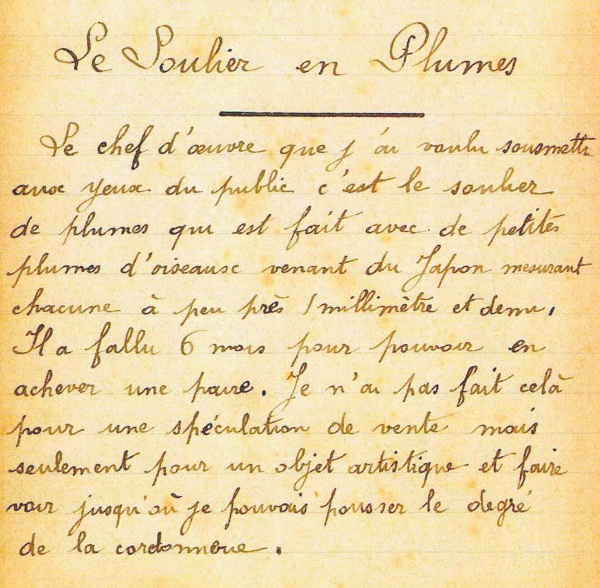 Le Soulier en Plumes
Le chef d'œuvre que j'ai voulu sousmettre
aux yeux du public c'est le soulier
de plumes qui est fait avec de petites
plumes d'oiseaux venant du Japon mesurant
chacune à peu près 1 millimètre et demi.
Il a fallu 6 mois pour pouvoir en
achever une paire. Je n'ai pas fait celà
pour une spéculation de vente mais
seulement pour un objet artistique et faire
voir jusqu'où je pouvais pousser le degré
de la cordonnerie.